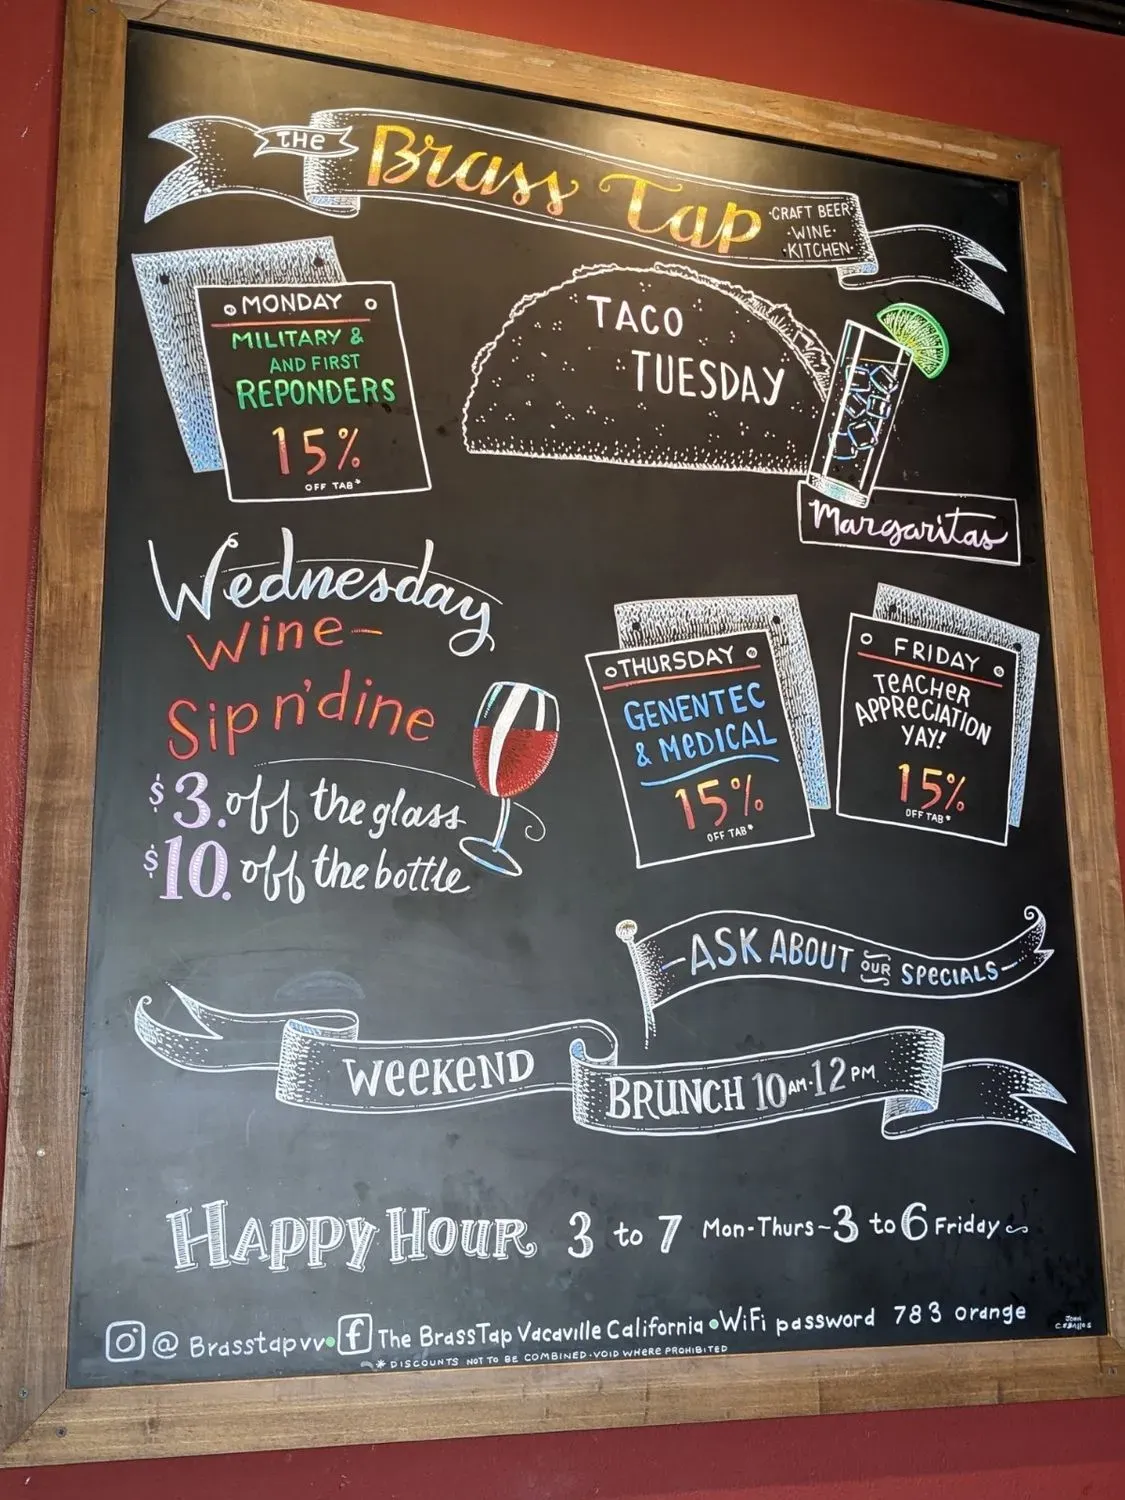 THE Brass Tap
·CRAFT BEER·
·WINE·
·KITCHEN·
MONDAY
MILITARY &
AND FIRST
REPONDERS
15%
OFF TAB*
TACO
TUESDAY
Margaritas
Wednesday
Wine-
Sip n'dine
$3. off the glass
$10. off the bottle
THURSDAY
GENENTEC
& MeDICAL
15%
OFF TAB*
FRIDAY
TeACHER
APPReCIATION
YAY!
15%
OFF TAB*
-ASK ABOUT OUR SPECIALS-
WeeKeND
BRUNCH 10AM-12PM
HAPPY HOUR 3 to 7 Mon-Thurs-3 to 6 Friday
@ Brasstapvv • f The BrassTap Vacaville California • WiFi password 783 orange
* DISCOUNTS NOT TO BE COMBINED·VOID WHERE PROHIBITED
JOHN
CEBAllOS